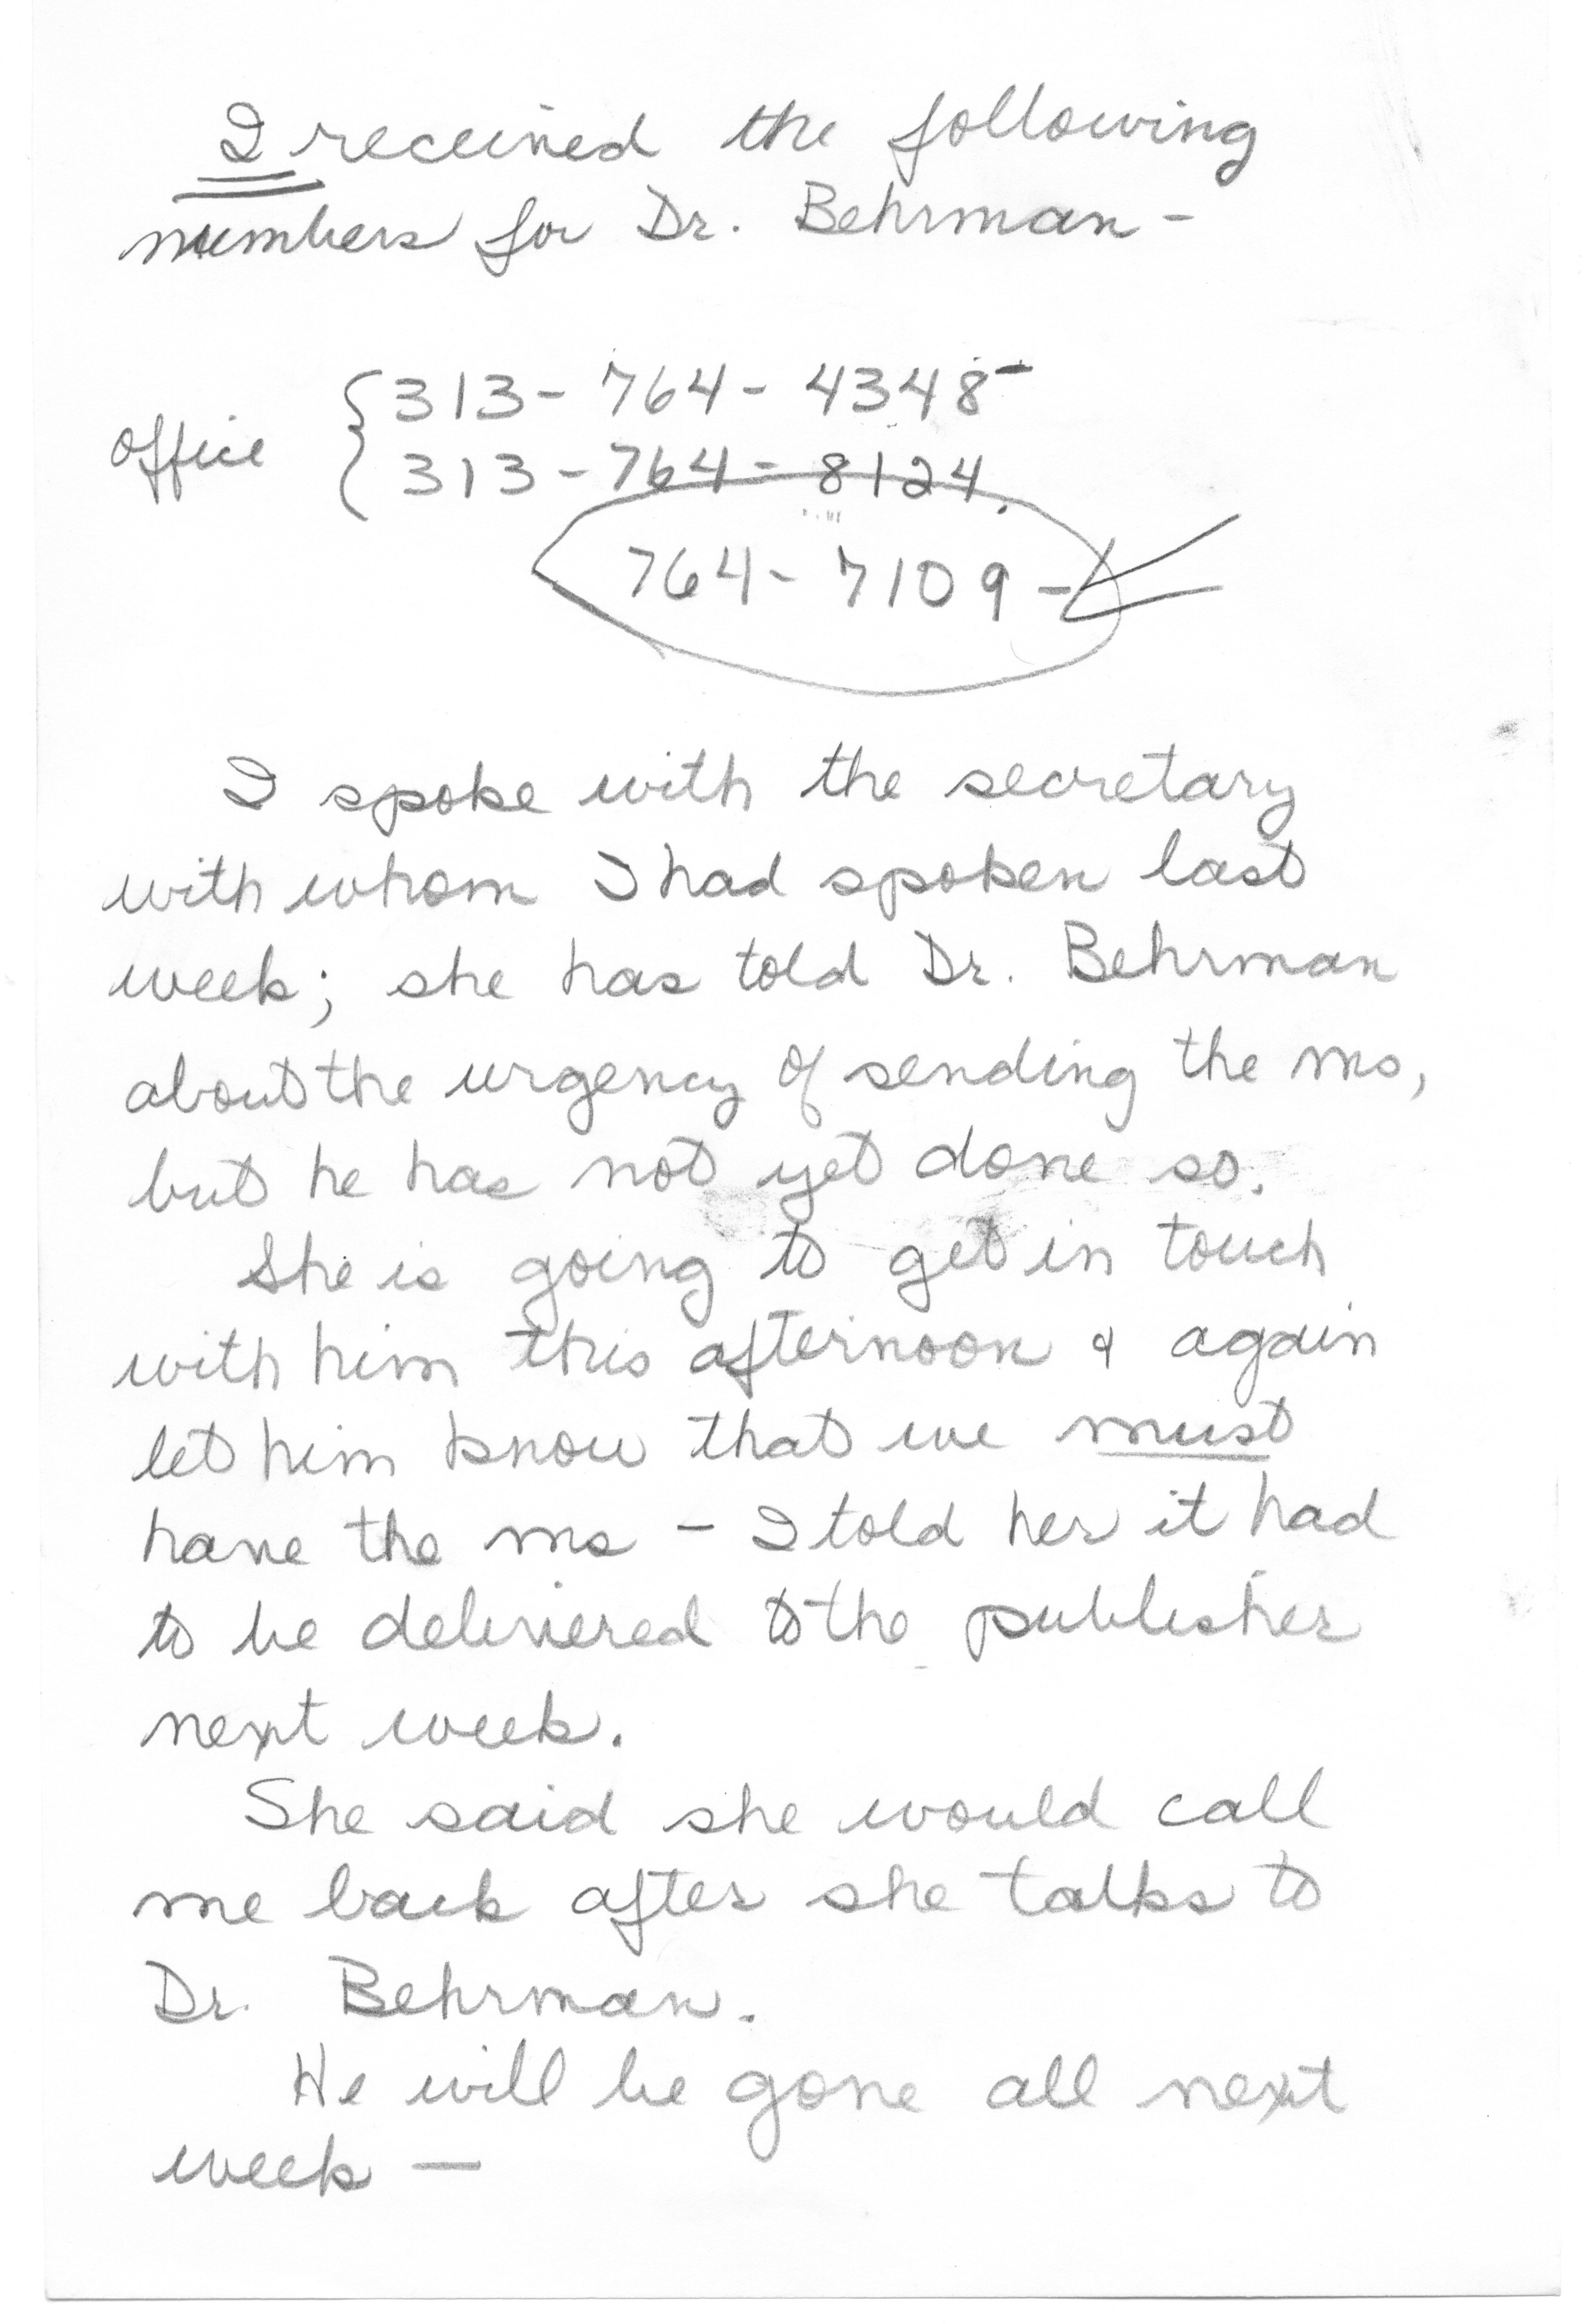 I received the following
numbers for Dr. Behrman -
313 - 764 - 4348 -
Office
313 - 764 - 8124.
764 - 7109 -
I spoke with the secretary
with whom I had spoken last
week; she has told Dr. Behrman
about the urgency of sending the ms,
but he has not yet done so.
She is going to get in touch
with him this afternoon & again
let him know that we must
have the ms - I told her it had
to be delivered to the publisher
next week.
She said she would call
me back after she talks to
Dr. Behrman.
He will be gone all next
week —